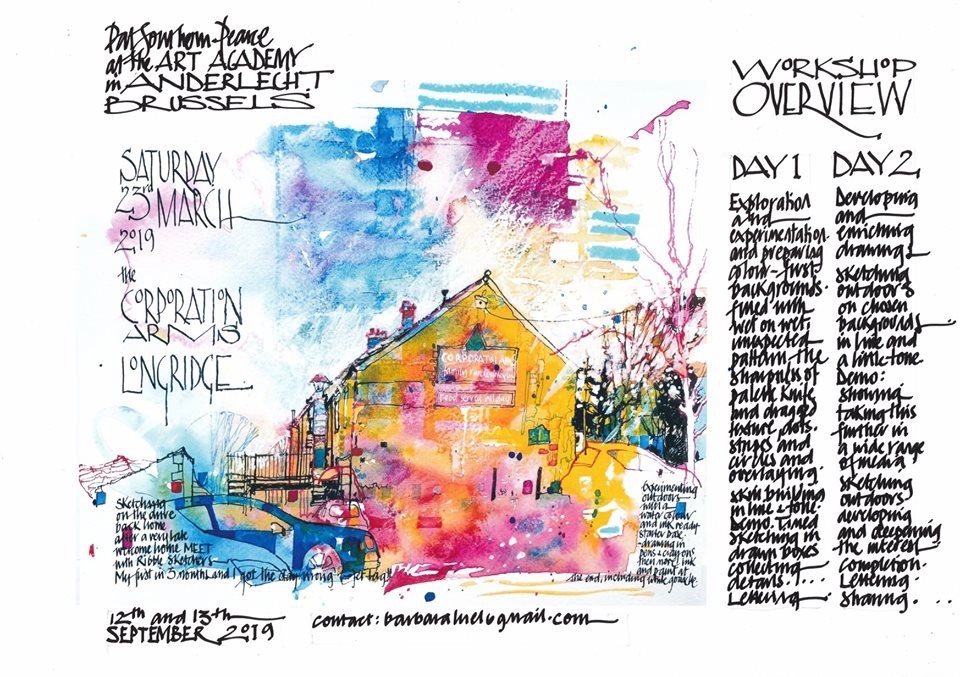 Pat Southern-Pearce
at the ART ACADEMY
in ANDERLECHT
BRUSSELS
SATURDAY
23rd MARCH
2019
the
CORPORATION
ARMS
LONGRIDGE
CORPORATION ARMS
Sketching
on the drive
back home
after a very late
welcome home MEET
with Ribble Sketchers-
My first in 3 months and I got the day wrong - jet lag!!
Experimenting
outdoors
with a
water colour
and ink ready-
starter page-
drawing in
pens & crayons
then more ink
and paint at
the end, including white gouache.
12th and 13th
SEPTEMBER 2019
contact: barbaraluel@gmail.com
WORKSHOP
OVERVIEW
DAY 1
Exploration
and
experimentation.
and preparing
colour-first
backgrounds.
fired with
wet on wet,
unexpected
pattern, the
sharpness of
palette knife
and dragged
texture, dots.
stripes and
circles and
overlaying.
skill building
in line & tone.
Demo. Timed
sketching in
drawn boxes
collecting
details!...
Lettering
DAY 2
Developing
and
enriching
drawing
sketching
outdoors
on chosen
backgrounds
in line and
a little tone
Demo:
showing
taking this
further in
a wide range
of media,
sketching
outdoors
developing
and deepening
the interest
completion.
Lettering.
Sharing. ...